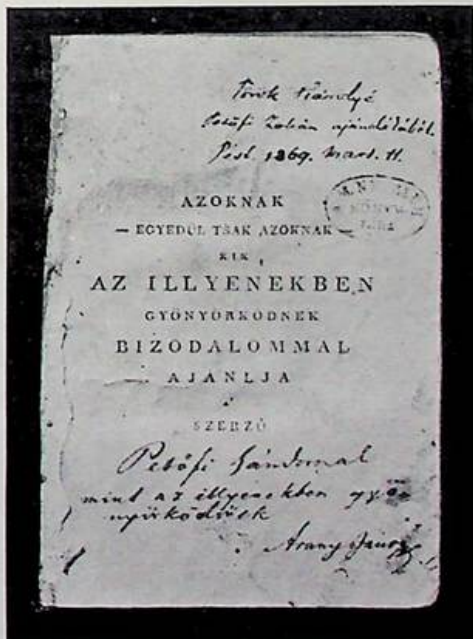 Török Károlyé
Petőfi Zoltán ajándékából.
Pest. 1869. Mart. 11.
AZOKNAK
— EGYEDÜL TSAK AZOKNAK —
KIK
AZ ILLYENEKBEN
GYÖNYÖRKÖDNEK
BIZODALOMMAL
AJÁNLJA
A'
SZERZŐ
Petőfi Sándornak
mint az illyenekben gyö
nyörködőnek
Arany János